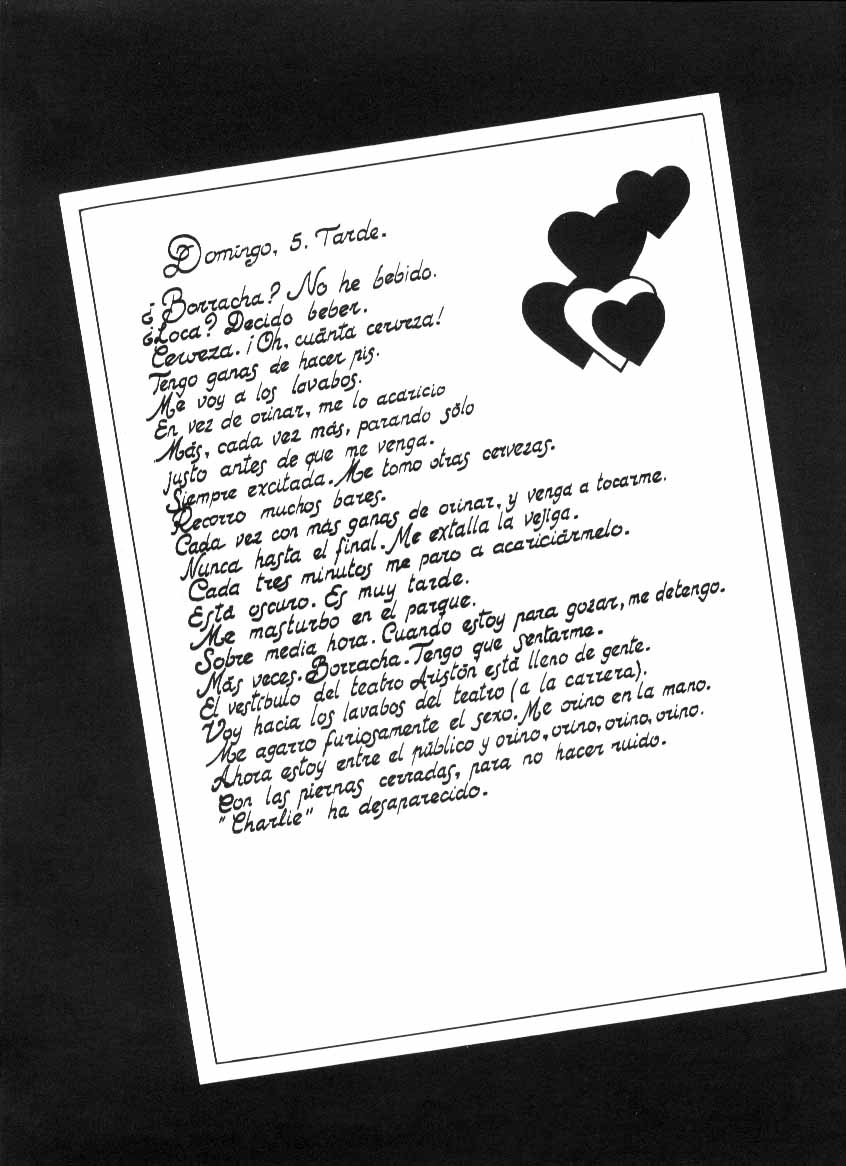 Domingo, 5. Tarde.
¿Borracha? No he bebido.
¿Loca? Decido beber.
Cerveza. ¡Oh, cuánta cerveza!
Tengo ganas de hacer pis.
Me voy a los lavabos.
En vez de orinar, me lo acaricio
Más, cada vez más, parando sólo
justo antes de que me venga.
Siempre excitada. Me tomo otras cervezas.
Recorro muchos bares.
Cada vez con más ganas de orinar, y venga a tocarme.
Nunca hasta el final. Me extalla la vejiga.
Cada tres minutos me paro a acariciármelo.
Está oscuro. Es muy tarde.
Me masturbo en el parque.
Sobre media hora. Cuando estoy para gozar, me detengo.
Más veces. Borracha. Tengo que sentarme.
El vestíbulo del teatro Aristón está lleno de gente.
Voy hacia los lavabos del teatro (a la carrera).
Me agarro furiosamente el sexo. Me orino en la mano.
Ahora estoy entre el público y orino, orino, orino, orino.
Con las piernas cerradas, para no hacer ruido.
"Charlie" ha desaparecido.